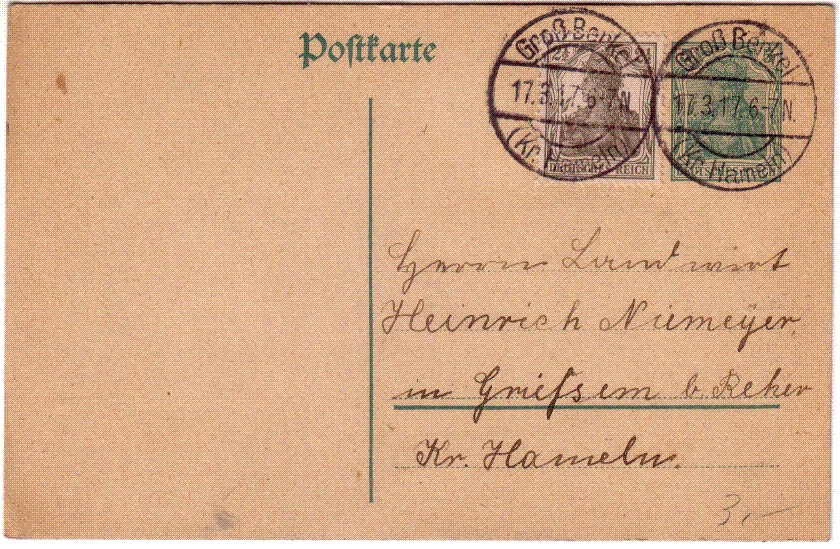 Postkarte
Groß Berkel
17.3.17. 6-7N.
(Kr. Hameln)
DEUTSCHES REICH
Groß Berkel
17.3.17. 6-7N.
(Kr. Hameln)
DEUTSCHES REICH
Herrn Landwirt
Heinrich Niemeyer.
in Griefsem b. Reher
Kr. Hameln.
3,-